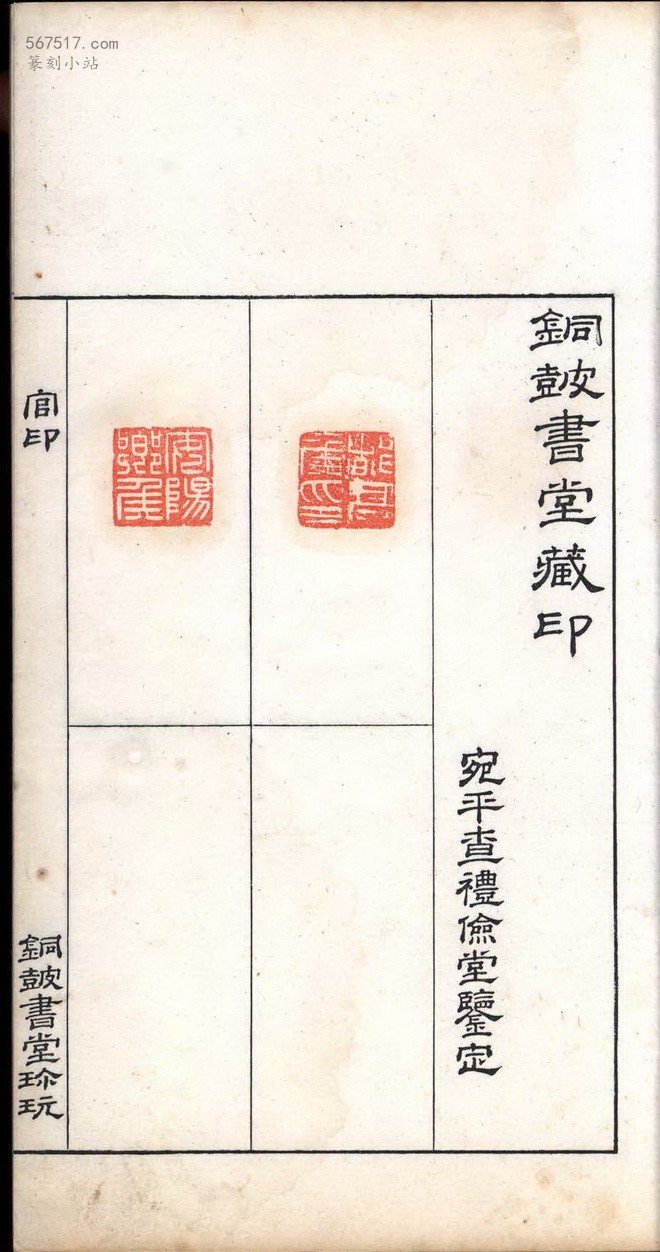 567517.com
篆刻小站
銅鼓書堂藏印
宛平查禮儉堂鑒定
官印
銅鼓書堂珍玩